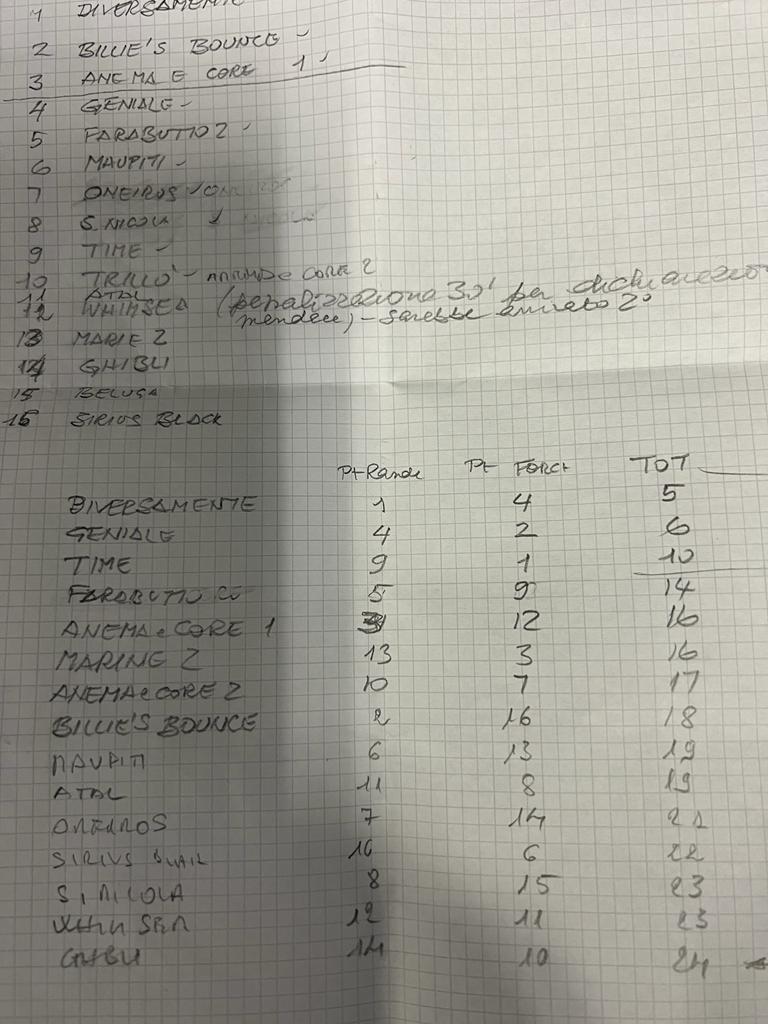 1 DIVERSAMENTE
2 BILLIE'S BOUNCE -
3 ANEMA E CORE 1
4 GENIALE -
5 FARABUTTO 2
6 MAUPITI -
7 ONEIROS
8 S. NICOLA
9 TIME -
10 TRILLO' - ANEMA e CORE 2
11 ATAL
12 WHIMSEA (penalizzazione 30' per dichiarazione
mendace) - sarebbe arrivato 2°
13 MARIE 2
14 GHIBLI
15 BELUGA
16 SIRIUS BLACK
Pt Rande Pt FORCH TOT
DIVERSAMENTE 1 4 5
GENIALE 4 2 6
TIME 9 1 10
FARABUTTO 5 9 14
ANEMA e CORE 1 3 12 16
MARINE 2 13 3 16
ANEMA e CORE 2 10 7 17
BILLIE'S BOUNCE 2 16 18
MAUPITI 6 13 19
ATAL 11 8 19
ONEIROS 7 14 21
SIRIUS BLACK 16 6 22
S. NICOLA 8 15 23
WHIMSEA 12 11 23
GHIBLI 14 10 24